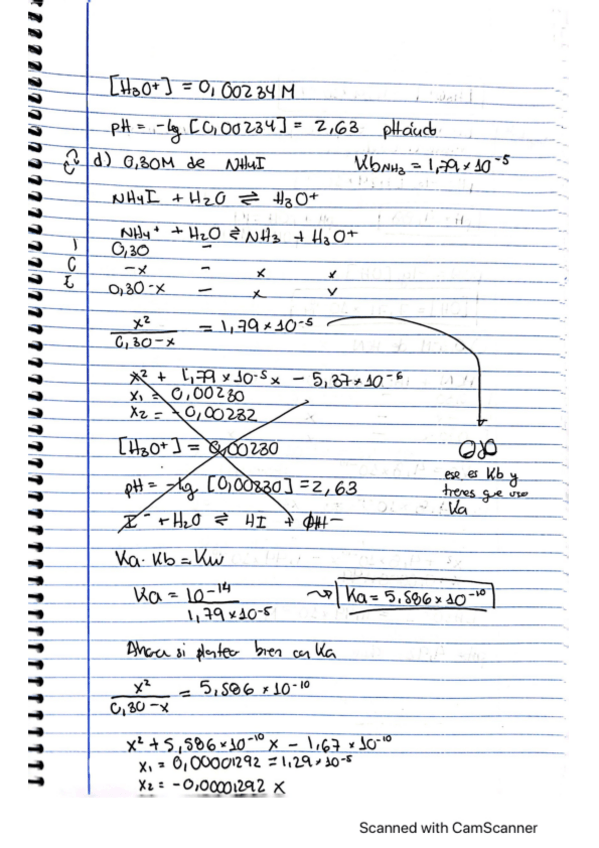 [H3O+] = 0,00234 M
pH = -log [0,00234] = 2,63 pH ácido
d) 0,30M de NH4I KbNH3 = 1,79 × 10⁻⁵
NH4I + H2O ⇌ H3O+
NH4+ + H2O ⇌ NH3 + H3O+
I 0,30 -
C -x - x x
E 0,30-x - x x
x²/(0,30-x) = 1,79 × 10⁻⁵
x² + 1,79 × 10⁻⁵x - 5,37 × 10⁻⁶
x1 = 0,00230
x2 = -0,00232
[H3O+] = 0,00230
OJO
ese es Kb y
tienes que usar
Ka
pH = -log [0,00230] = 2,63
I⁻ + H2O ⇌ HI + OH-
Ka · Kb = Kw
Ka = 10⁻¹⁴/(1,79 × 10⁻⁵) → Ka = 5,586 × 10⁻¹⁰
Ahora si planteo bien con Ka
x²/(0,30-x) = 5,586 × 10⁻¹⁰
x² + 5,586 × 10⁻¹⁰ x - 1,67 × 10⁻¹⁰
x1 = 0,00001292 = 1,29 × 10⁻⁵
x2 = -0,00001292 X
Scanned with CamScanner